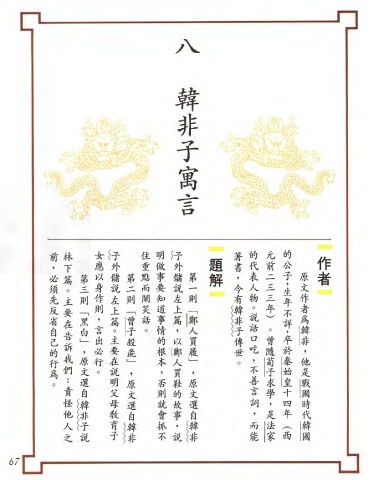 八 韓非子寓言
作者
原文作者為韓非，他是戰國時代韓國
的公子，生年不詳，卒於秦始皇十四年（西
元前二三三年）。曾隨荀子求學，是法家
的代表人物。說話口吃，不善言詞，而能
著書，今有韓非子傳世。
題解
第一則「鄭人買履」，原文選自韓非
子外儲說左上篇，以鄭人買鞋的故事，說
明做事要知道事情的根本，否則就會抓不
住重點而鬧笑話。
第二則「曾子殺彘」，原文選自韓非
子外儲說左上篇。主要在說明父母教育子
女應以身作則，言出必行。
第三則「黑白」，原文選自韓非子說
林下篇。主要在告訴我們：責怪他人之
前，必須先反省自己的行為。
67